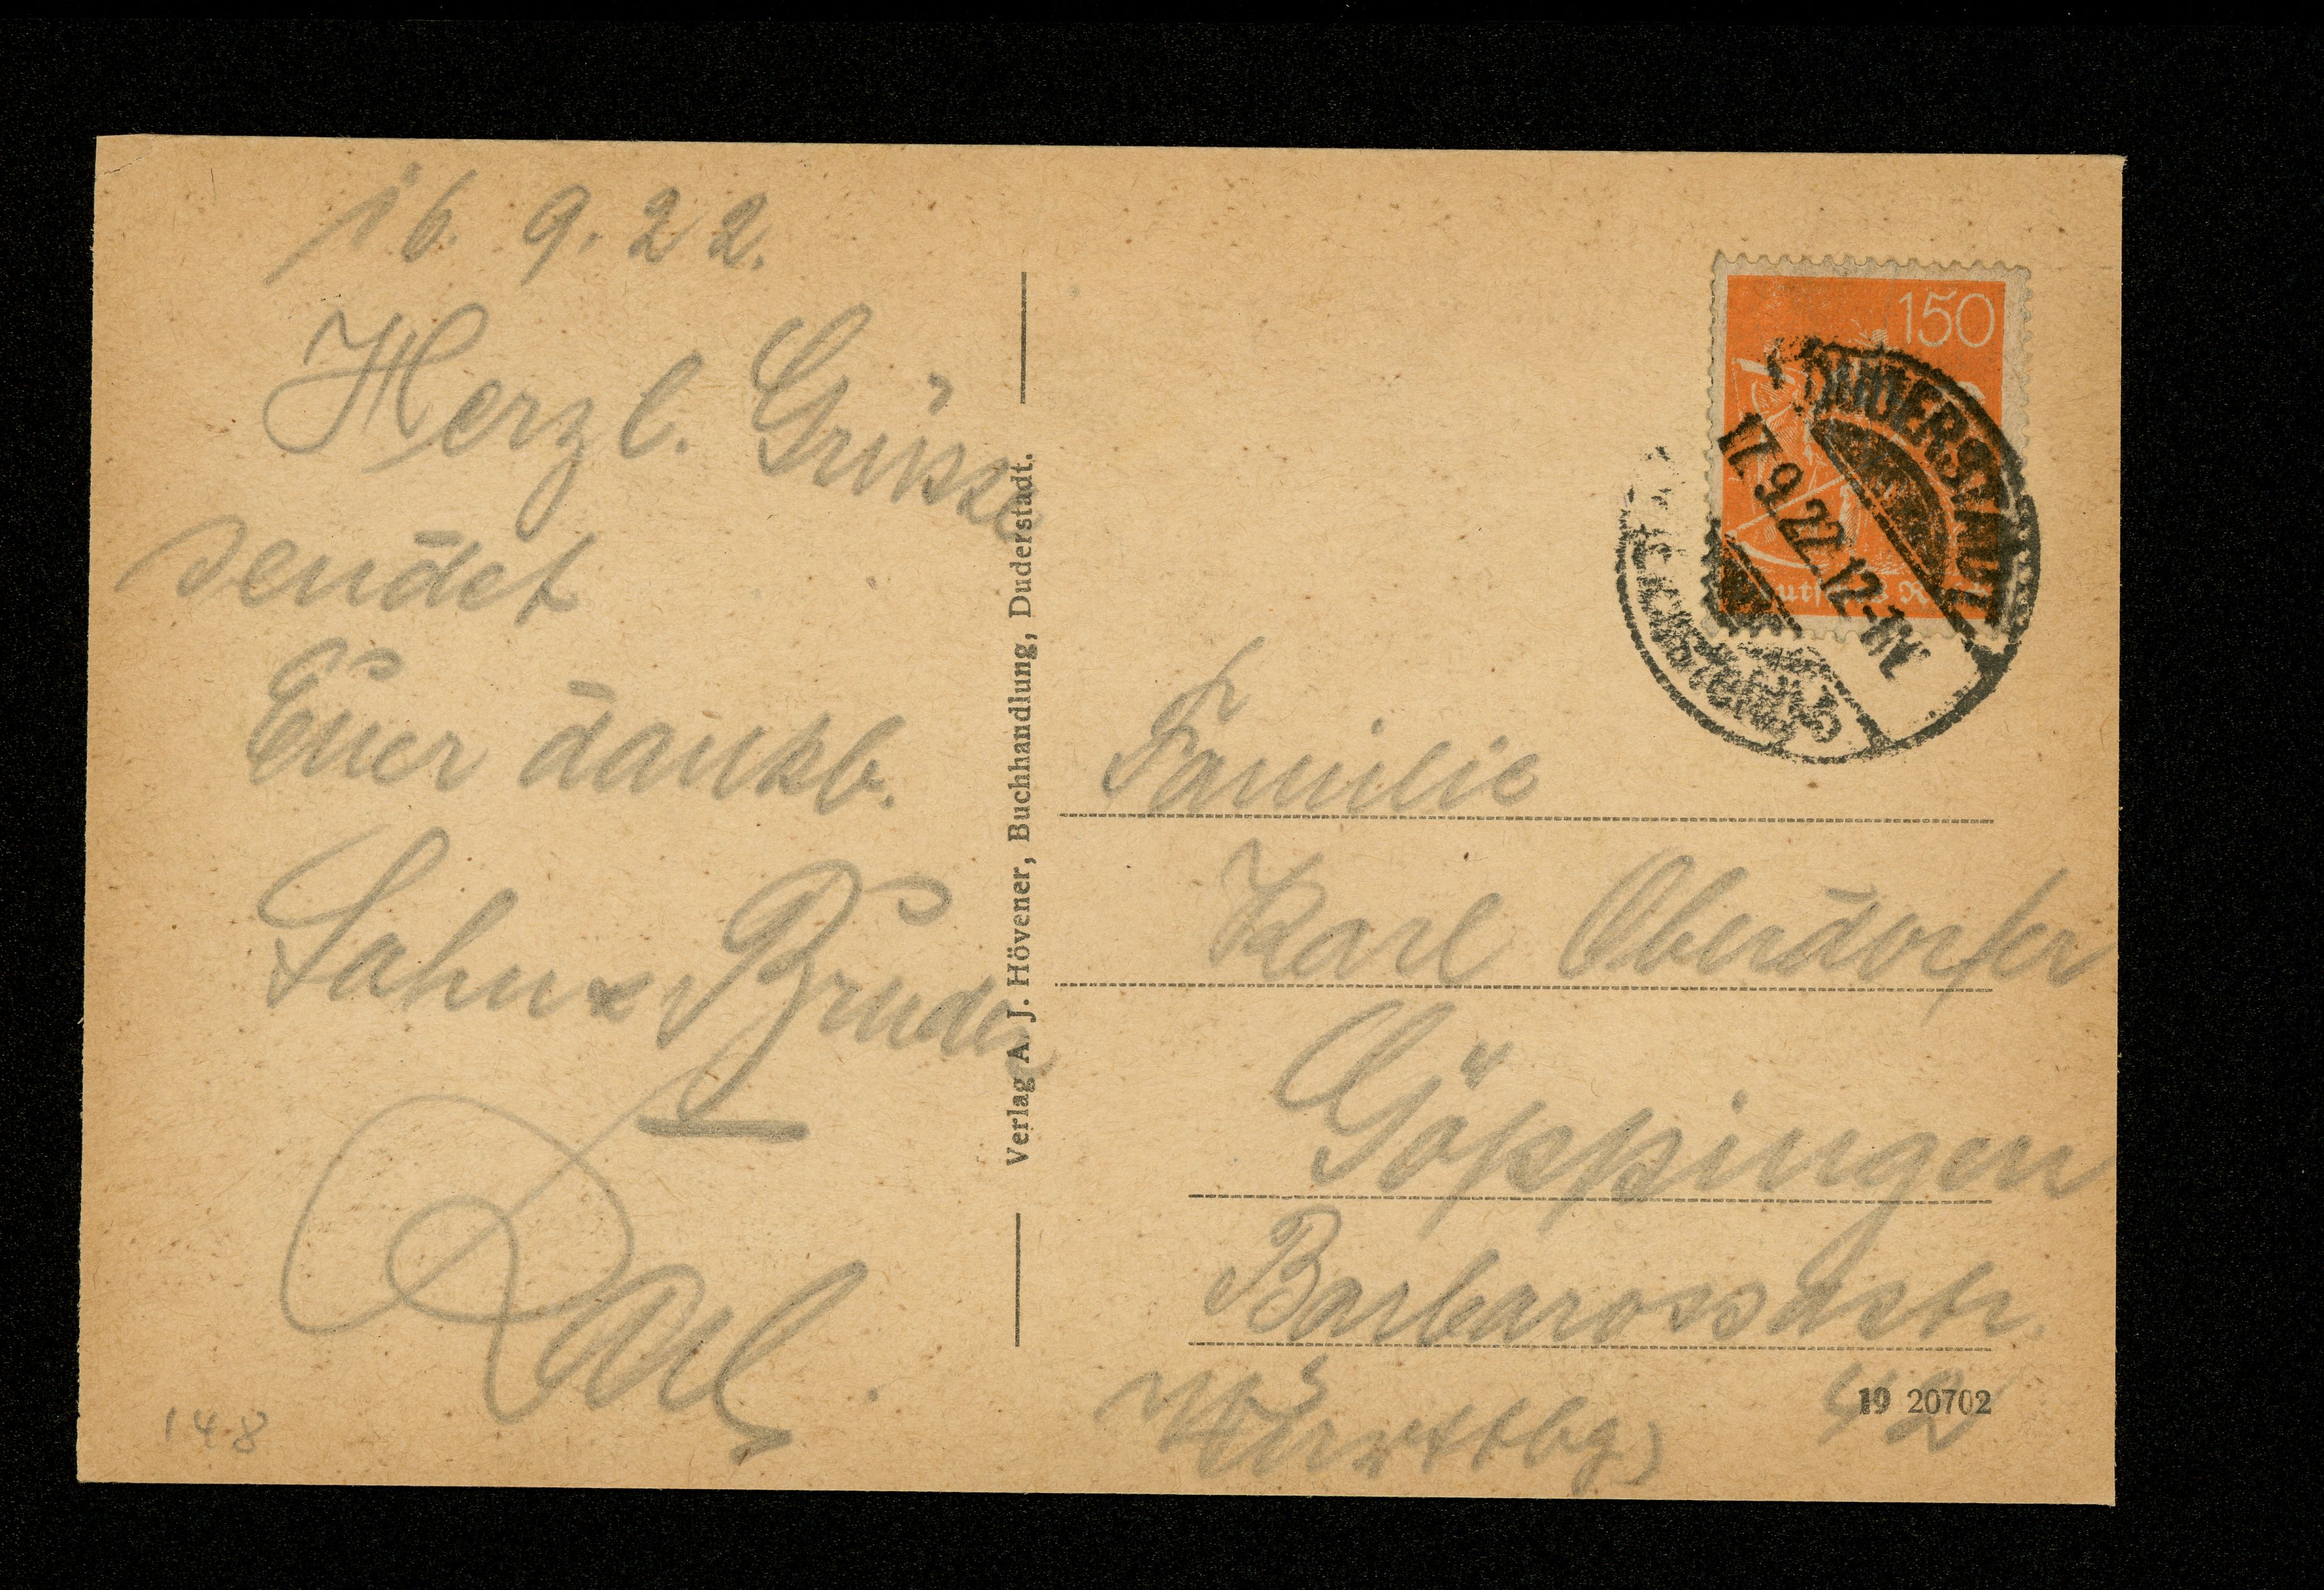 16. 9. 22.
Herzl. Grüsse
sendet
Euer dankb.
Sohn & Bruder
Paul
148
Verlag A. J. Hövener, Buchhandlung, Duderstadt.
150
Deutsches Reich
DUDERSTADT
17.9.22.12-1N.
Familie
Karl Oberdorfer
Göppingen
Barbarossastr.
42
Württbg)
19 20702